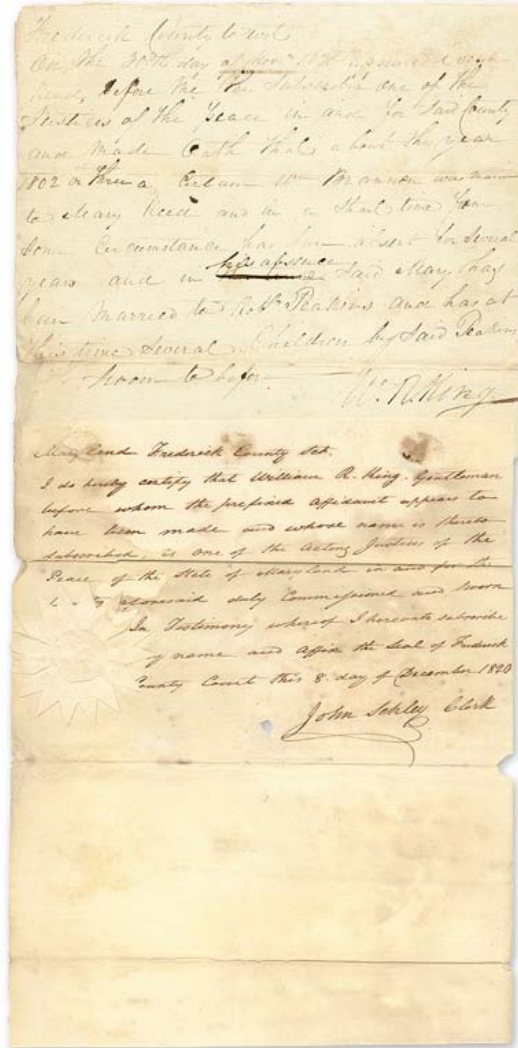 Frederick County to wit
On the 30th day of Novr 1820 appeared
Reed, before me the Subscriber one of the
Justices of the Peace in and for Said County
and Made Oath that about the year
1802 or three a Certain Wm Brannon was married
to Mary Reed and in a Short time from
Some Circumstance has been absent for Several
years and in his absence Said Mary has
been Married to Robt Peakins and has at
this time Several Children by Said Peakins
Sworn to before Wm R King
Maryland Frederick County Sct.
I do hereby certify that William R. King. Gentleman
before whom the prefixed Affidavit appears to
have been made and whose name is thereto
subscribed, is one of the Acting Justices of the
Peace of the State of Maryland in and for the
aforesaid duly Commissioned and Sworn
In Testimony whereof I hereunto subscribe
my name and affix the Seal of Frederick
County Court this 8. day of December 1820
John Schley Clerk